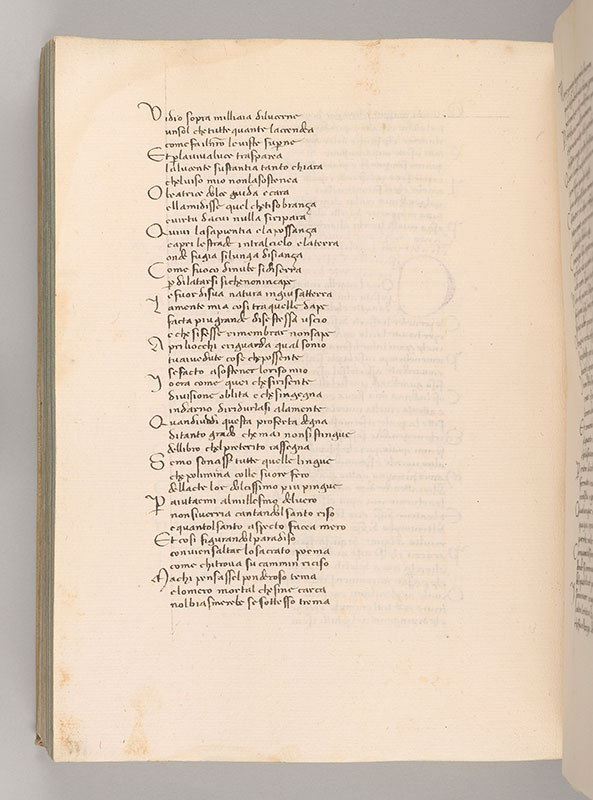 Vidio sopra milliaia dilucerne
unsol chetutte quante laccendea
come fa ilnro leviste superne
Et p̱ lavivaluce trasparea
la lucente sustantia tanto chiara
chelviso mio nonlasostenea
O beatrice dolce guida ecara
ella midisse quel chetisobranza
e virtu dacui nulla siripara
Quivi lasapientia elapossanza
caprì lestrade intralcielo elaterra
onde fu gia silunga disianza
Come fuoco dinube sidiserra
p̱ dilatarsi sichenonincape
e fuor disua natura ingiu satterra
Lamente mia cosi traquelle dape
facta piu grande dise stessa uscio
e che sifesse rimembrar nonsape
Apri liocchi eriguarda qual sonio
tuaivedute cose chepossente
se facto asostener loriso mio
Io era come quei chesirisente
divisione oblita e chesingegna
indarno diridurlasi alamente
Quandiudi questa proferta degna
ditanto grado che mai nonsistingue
dellibro chelpreterito rassegna
Se mo sonasser tutte quelle lingue
che polimina colle suore fero
dellacte lor dolcissimo piu pingue
Paiutarmi almillesmo delvero
nonsiverria cantandol santo riso
e quantolsanto aspecto facea mero
Et cosi figurandol paradiso
convien saltar losacrato poema
come chitrova su cammin riciso
Machi pensassel ponderoso tema
elomero mortal chesine carca
nolbiasmerebe sesottesso trema